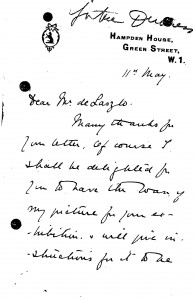 Duchess
HAMPDEN HOUSE,
GREEN STREET,
W. 1.
11th May.
Dear Mr de Laszlo.
Many thanks for
your letter. Of course I
shall be delighted for
you to have the loan of
my picture for your ex-
hibition. & will give in-
structions for it to be